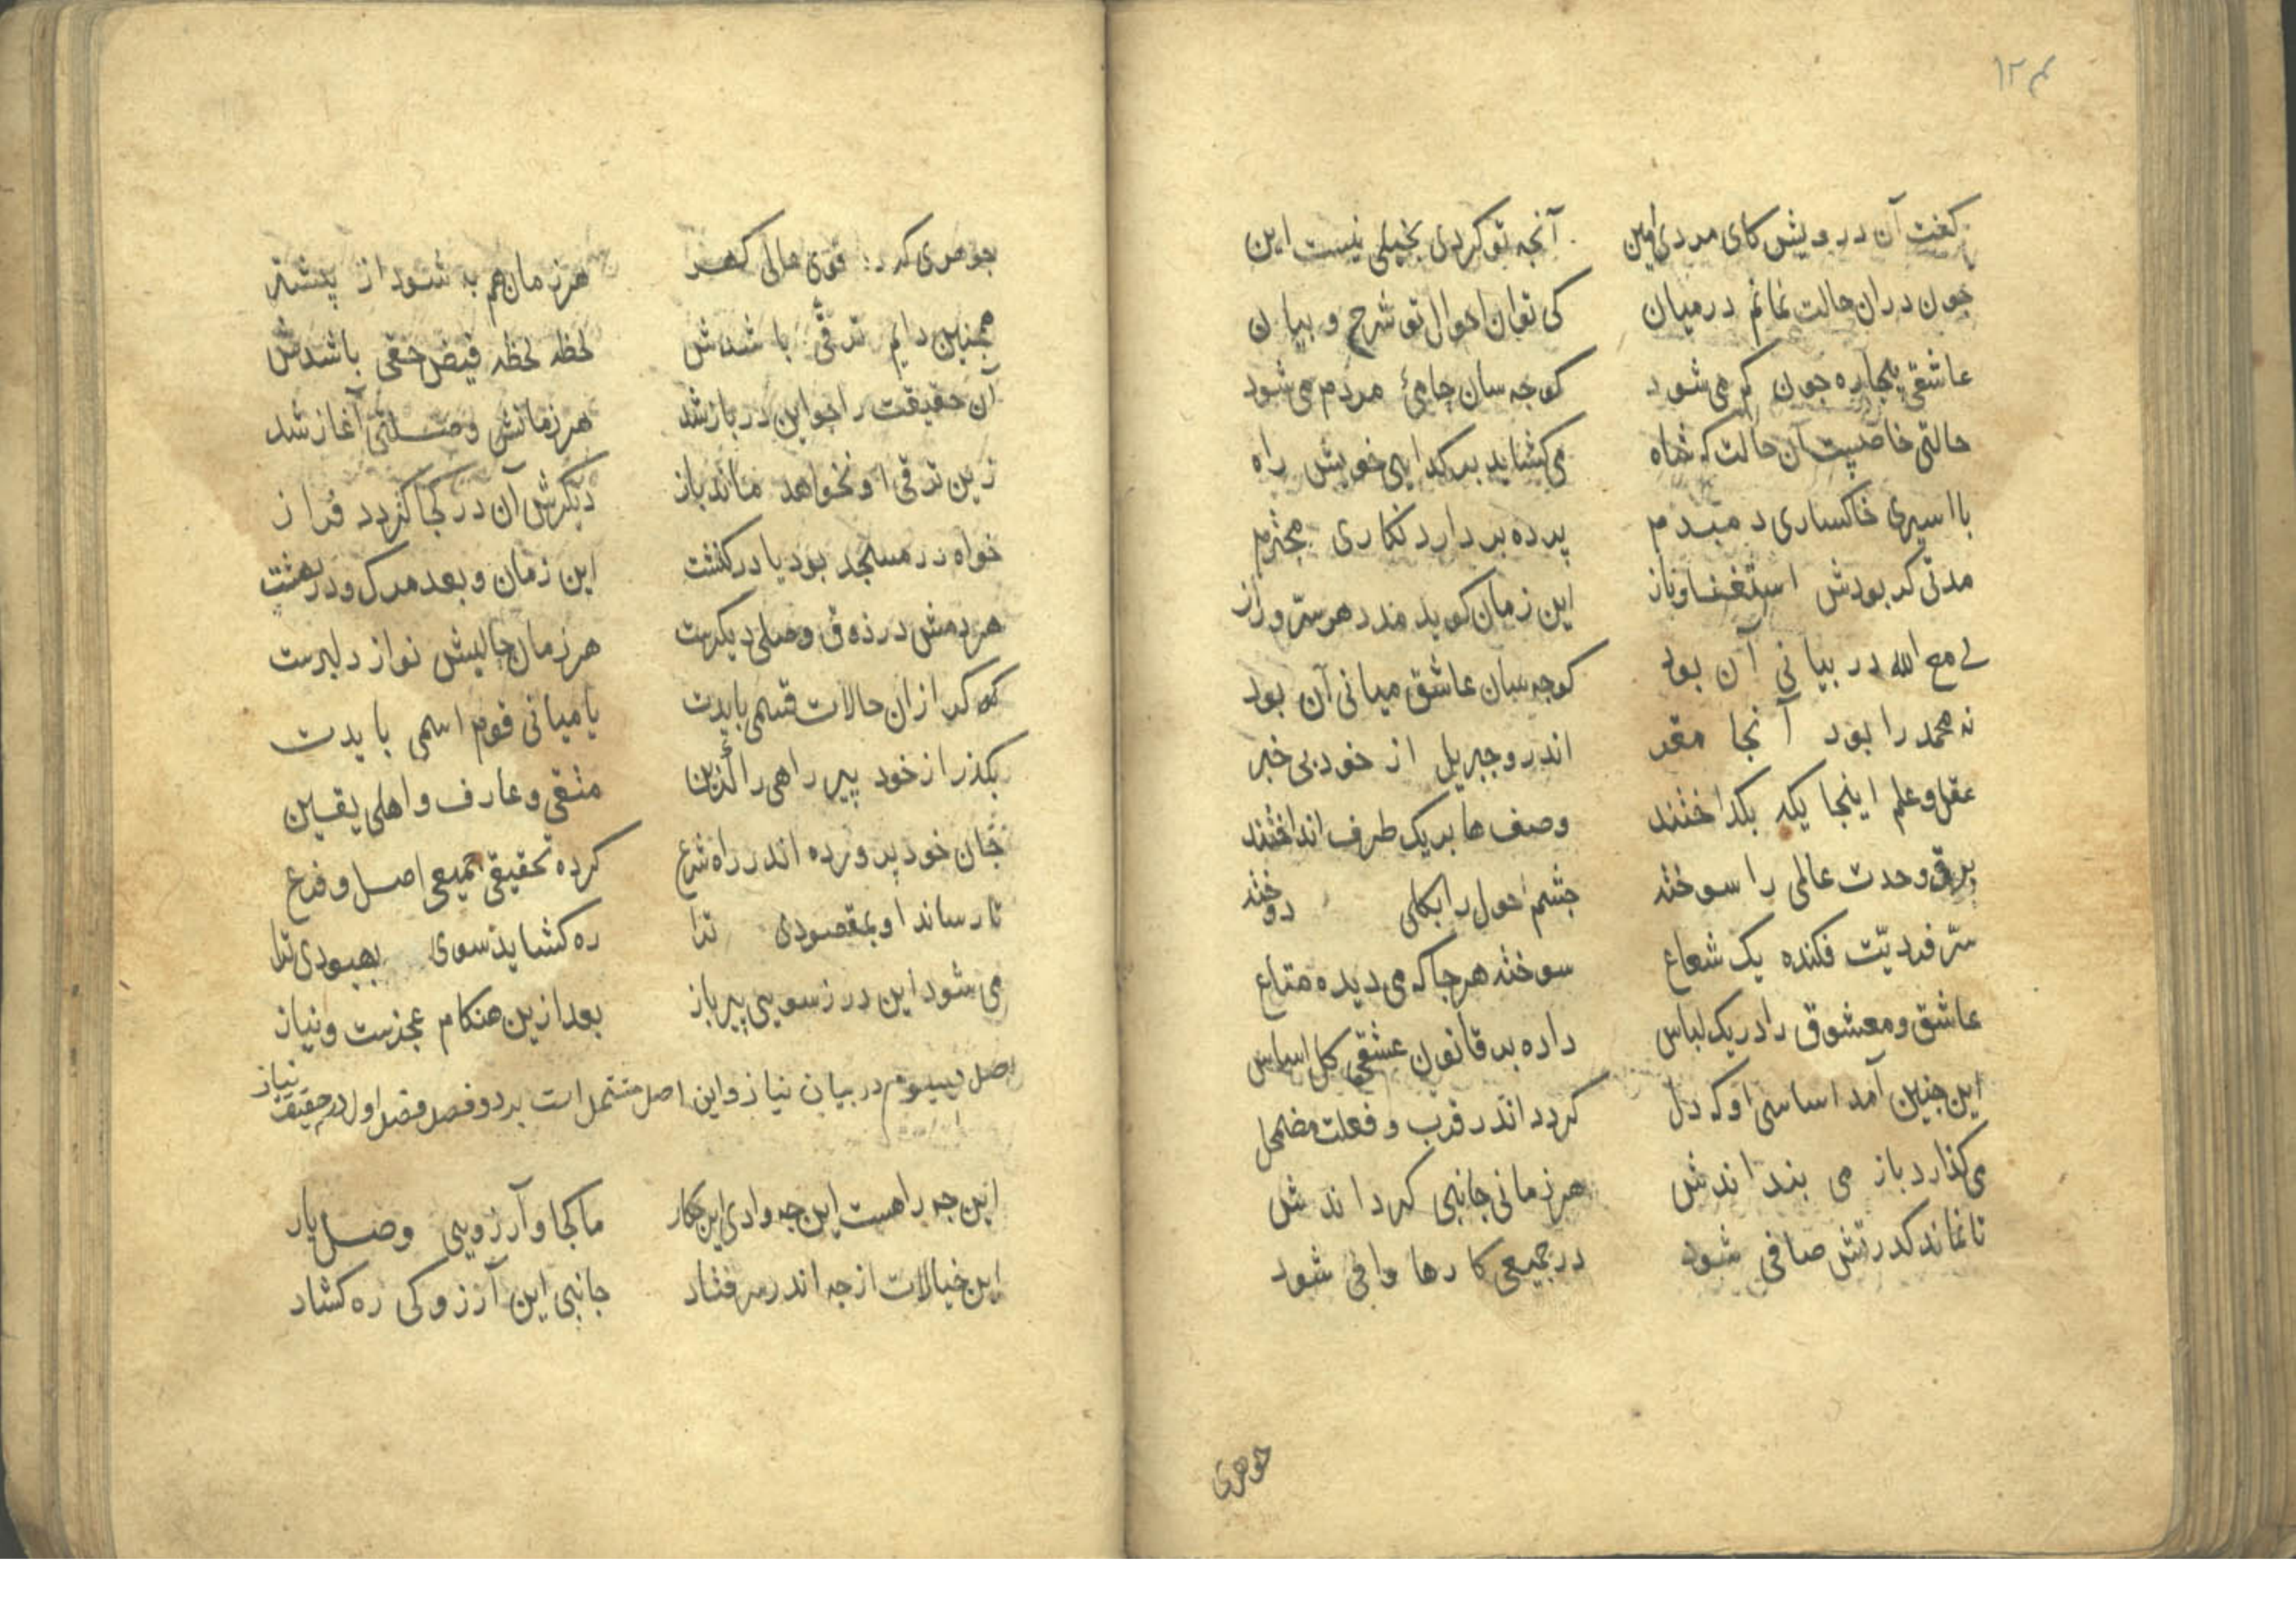 ۱۲۴
گفت آن درویش کای مردی امین آنچه تو کردی بخیلی نیست این
چون دران حالت نمانم درمیان کی توان احوال تو شرح و بیان
عاشقی بیچاره چون کم می شود کوچه سان حامئ مردم می شود
حالتی خاصیت آن حالت که شاه می کشاید بر کدایی خویش راه
با اسیری خاکساری دمبدم پرده بردارد نکاری محترم
مدتی کر بودش استغنا و ناز این زمان کوید مدد هر سر و راز
لی مع الله در بیانی آن بود کوچه سان عاشق میانی آن بود
نه محمد را بود آنجا مقر اندرو جبریل از خود بی خبر
عقل و علم اینجا یکه بکداختند وصف ها بر یک طرف انداختند
برق وحدت عالمی را سوخته چشم احول را بکلی دوخته
سر فردیت فکنده یک شعاع سوخته هر جا که می دیده متاع
عاشق و معشوق را در یک لباس داده بر قانون عشقی کل اساس
این چنین آمد اساسی او که دل کردد اندر قرب و فعلت مضمحل
می کذارد باز می بنداندش هر زمانی جانبی کرداندش
تا نماند کدرتش صافی شود در جمیعی کارها وافی شود
جوهری
جوهری کر د قوی مالی کهر هر زمان هم به شود از پیشتر
همچنین دایم ترقی باشدش لحظه لحظه فیض حقی باشدش
آن حقیقت را چو این در باز شد هر زمانش وصلتی آغاز شد
زین ترقی او نخواهد ماند باز دیکرش آن در کجا کردد فراز
خواه در مسجد بود یا در کنشت این زمان و بعد مرک و در بهشت
هر دمش در ذوق وصلی دیکرست هر زمان حالیش نواز دلبرست
که کر ازان حالات قسمی بایدت یا میانی قوم اسمی بایدت
بکذر از خود پیر راهی را کزین متقی و عارف و اهلی یقین
جان خود پرورده اندر راه شرع کرده تحقیقی جمیعی اصل و فرع
تا رساند او بمقصودی ترا ره کشاید سوی بهبودی ترا
می شود این در ز سویی پیر باز بعد ازین هنکام عجزست و نیاز
اصل سیوم در بیان نیاز و این اصل مشتمل است بر دو فصل فصل اول در حقیقت نیاز
این چه راهست این چه وادی این چکار ما کجا و آرزویی وصل یار
این خیالات از چه اندر سر فتاد جانبی این آرزو کی ره کشاد